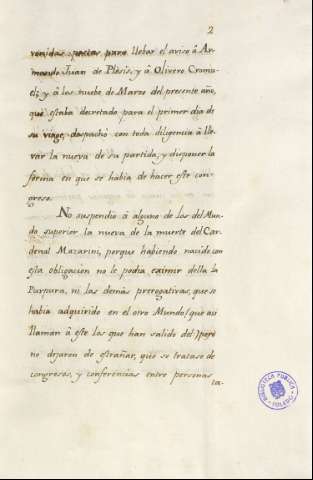 2
venidas postas para llebar el aviso â Ar-
mando Juan de Plesis, y â Olivero Cromu-
el; y â los nuebe de Marzo del presente año,
que estaba decretado para el primer dia de
su viage, despachò con toda diligencia â lle-
var la nueva de su partida, y disponer la
forma en que se habia de hacer este con-
greso.
No suspendio â alguno de los del Mun-
do superior la nueva de la muerte del Car-
denal Mazarini, porque habiendo nacido con
esta obligacion no le podia eximir della la
Purpura, ni las demàs prerogativas, que se
habia adquirido en el otro Mundo (que asi
llaman â este los que han salido del)
no dejaron de estrañar, que se tratase de
congresos, y conferencias entre personas
ta-
BIBLIOTECA PUBLICA
TOLEDO